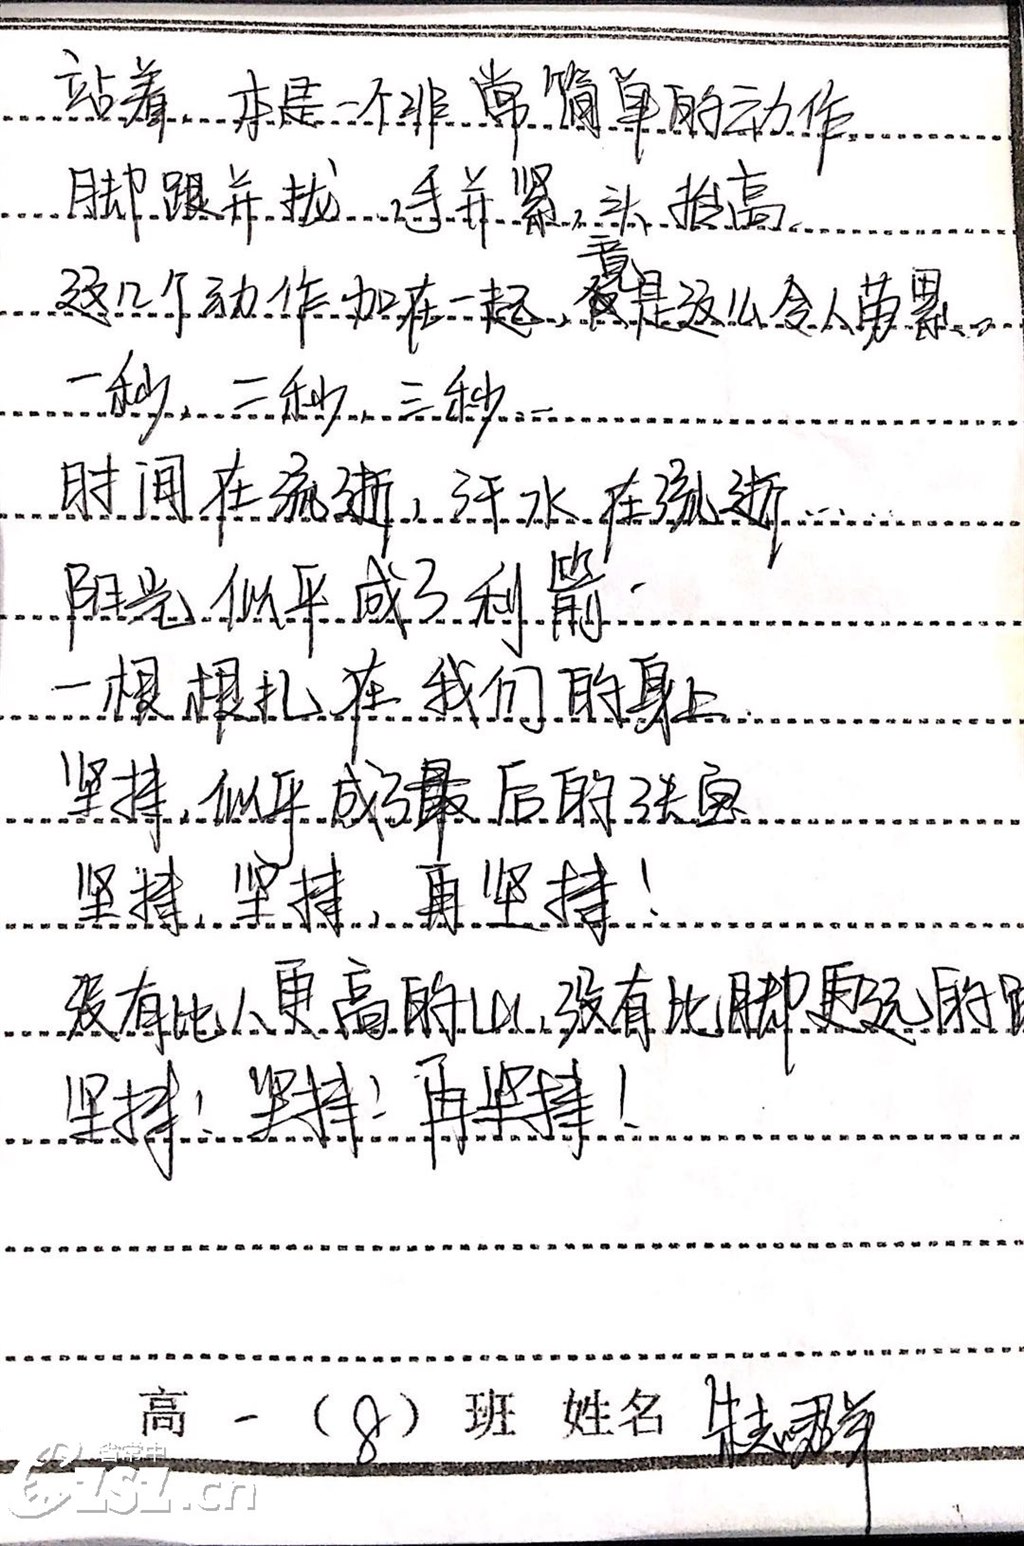 站着，本是一个非常简单的动作
脚跟并拢，手并紧，头抬高，
这几个动作加在一起，竟是这么令人劳累…
一秒，二秒，三秒…
时间在流逝，汗水在流逝……
阳光似乎成了利箭．
一根根扎在我们的身上．
坚持，似乎成了最后的
坚持，坚持，再坚持！
没有比人更高的山，没有比脚更远的路
坚持！坚持！再坚持！
高一（8）班 姓名
省常中
CZSZ.cn